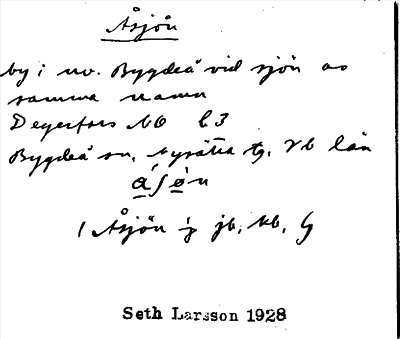 Åsjön
by i nv. Bygdeå vid sjön av
samma namn
Degerfors NO b3
Bygdeå sn, Nysätra tg, Vb län
Åsjön jb, kb, G
Seth Larsson 1928